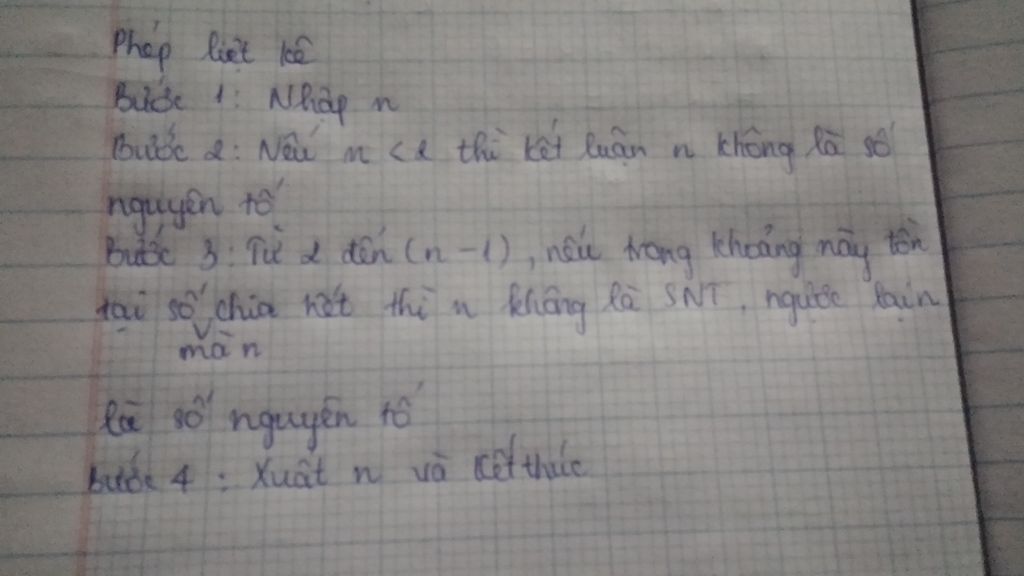 Phép liệt kê
Bước 1: Nhập n
Bước 2: Nếu n < 2 thì kết luận n không là số
nguyên tố
Bước 3: Từ 2 đến (n - 1), nếu trong khoảng này tồn
tại số chia hết thì n không là SNT, ngược lại n
mà n
là số nguyên tố
Bước 4: Xuất n và kết thúc